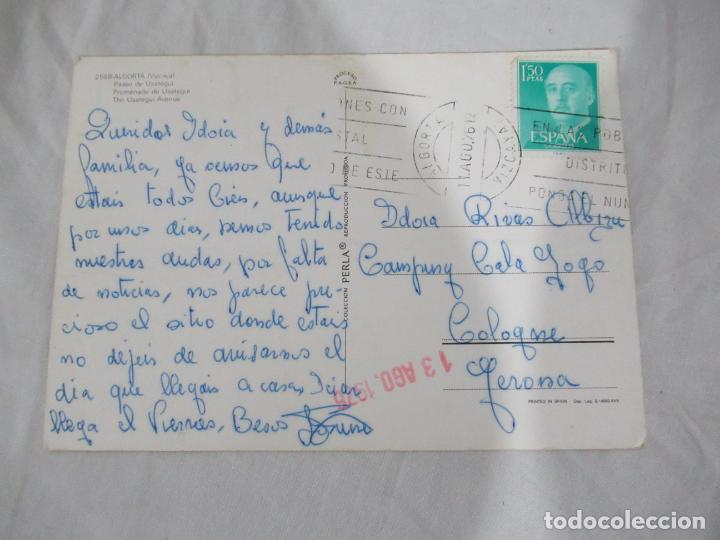 2568-ALGORTA (Vizcaya)
Paseo de Usategui
Promenade de Usategui
The Usategui Avenue
Queridos Idoia y demás
familia, ya vemos que
estais todos bien, aunque
por unos dias, hemos tenido
nuestras dudas, por falta
de noticias, nos parece pre-
cioso el sitio donde estais
no dejeis de avisarnos el
dia que llegais a casa, Iciar
llega el Viernes, Besos
COLECCION PERLA® REPRODUCCION PROHIBIDA
1'50
PTAS
ESPAÑA
ONES CON
STAL
DE ESTE
ALGORTA
VIZCAYA
EN LA POB
DISTRIT
PONGA EL NUM
Idoia Rivas Albizu
Camping Cala Gogo
Cologne
Gerona
13 AGO. 1976
PRINTED IN SPAIN
todocoleccion
todocoleccion.net